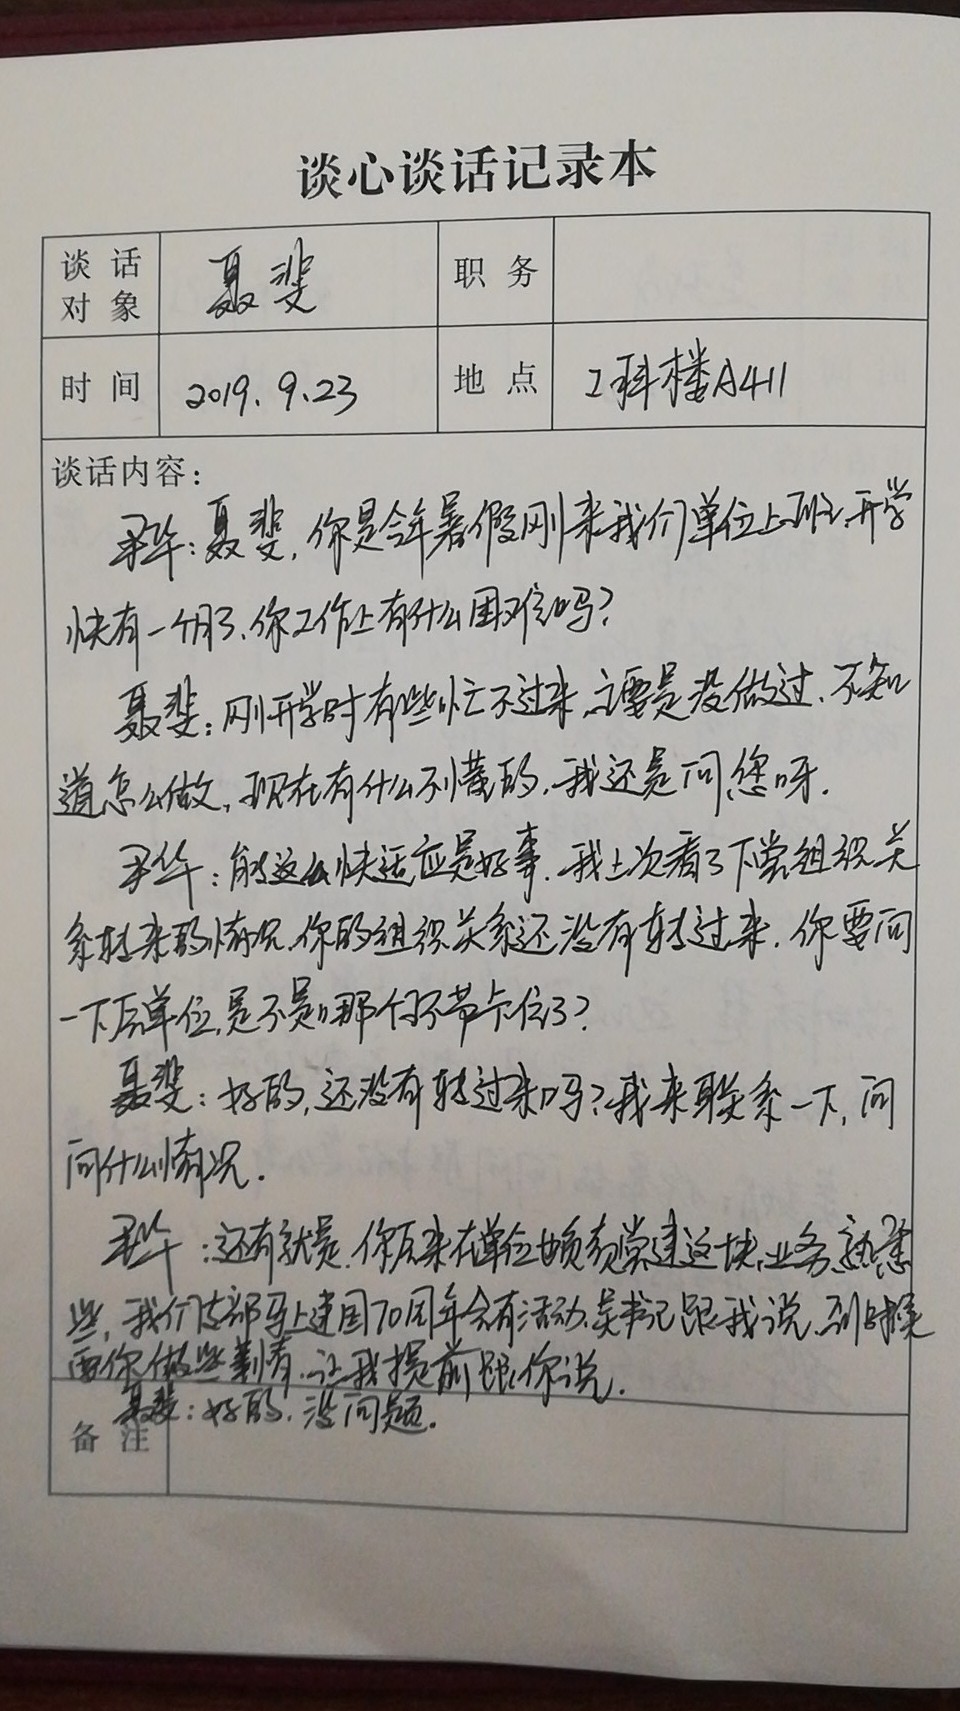 谈心谈话记录本
谈话对象 聂斐 职务
时间 2019.9.23 地点 工科楼A411
谈话内容：
华：聂斐，你是今年暑假刚来我们单位上班，开学
快有一个月了，你工作上有什么困难吗？
聂斐：刚开学时有些忙不过来，主要是没做过，不知
道怎么做，现在有什么不懂的，我还是问您呀．
华：能这么快适应是好事．我上次看了下党组织关
系转来的情况，你的组织关系还没有转过来．你要问
一下原单位，是不是哪个环节卡住了？
聂斐：好的，还没有转过来吗？我来联系一下，问
问什么情况．
华：还有就是，你原来在单位也负责党建这块，业务熟悉
些，我们支部马上建国70周年会有活动，吴书记跟我说，到时候
要你做些事情，让我提前跟你说．
聂斐：好的，没问题．
备注